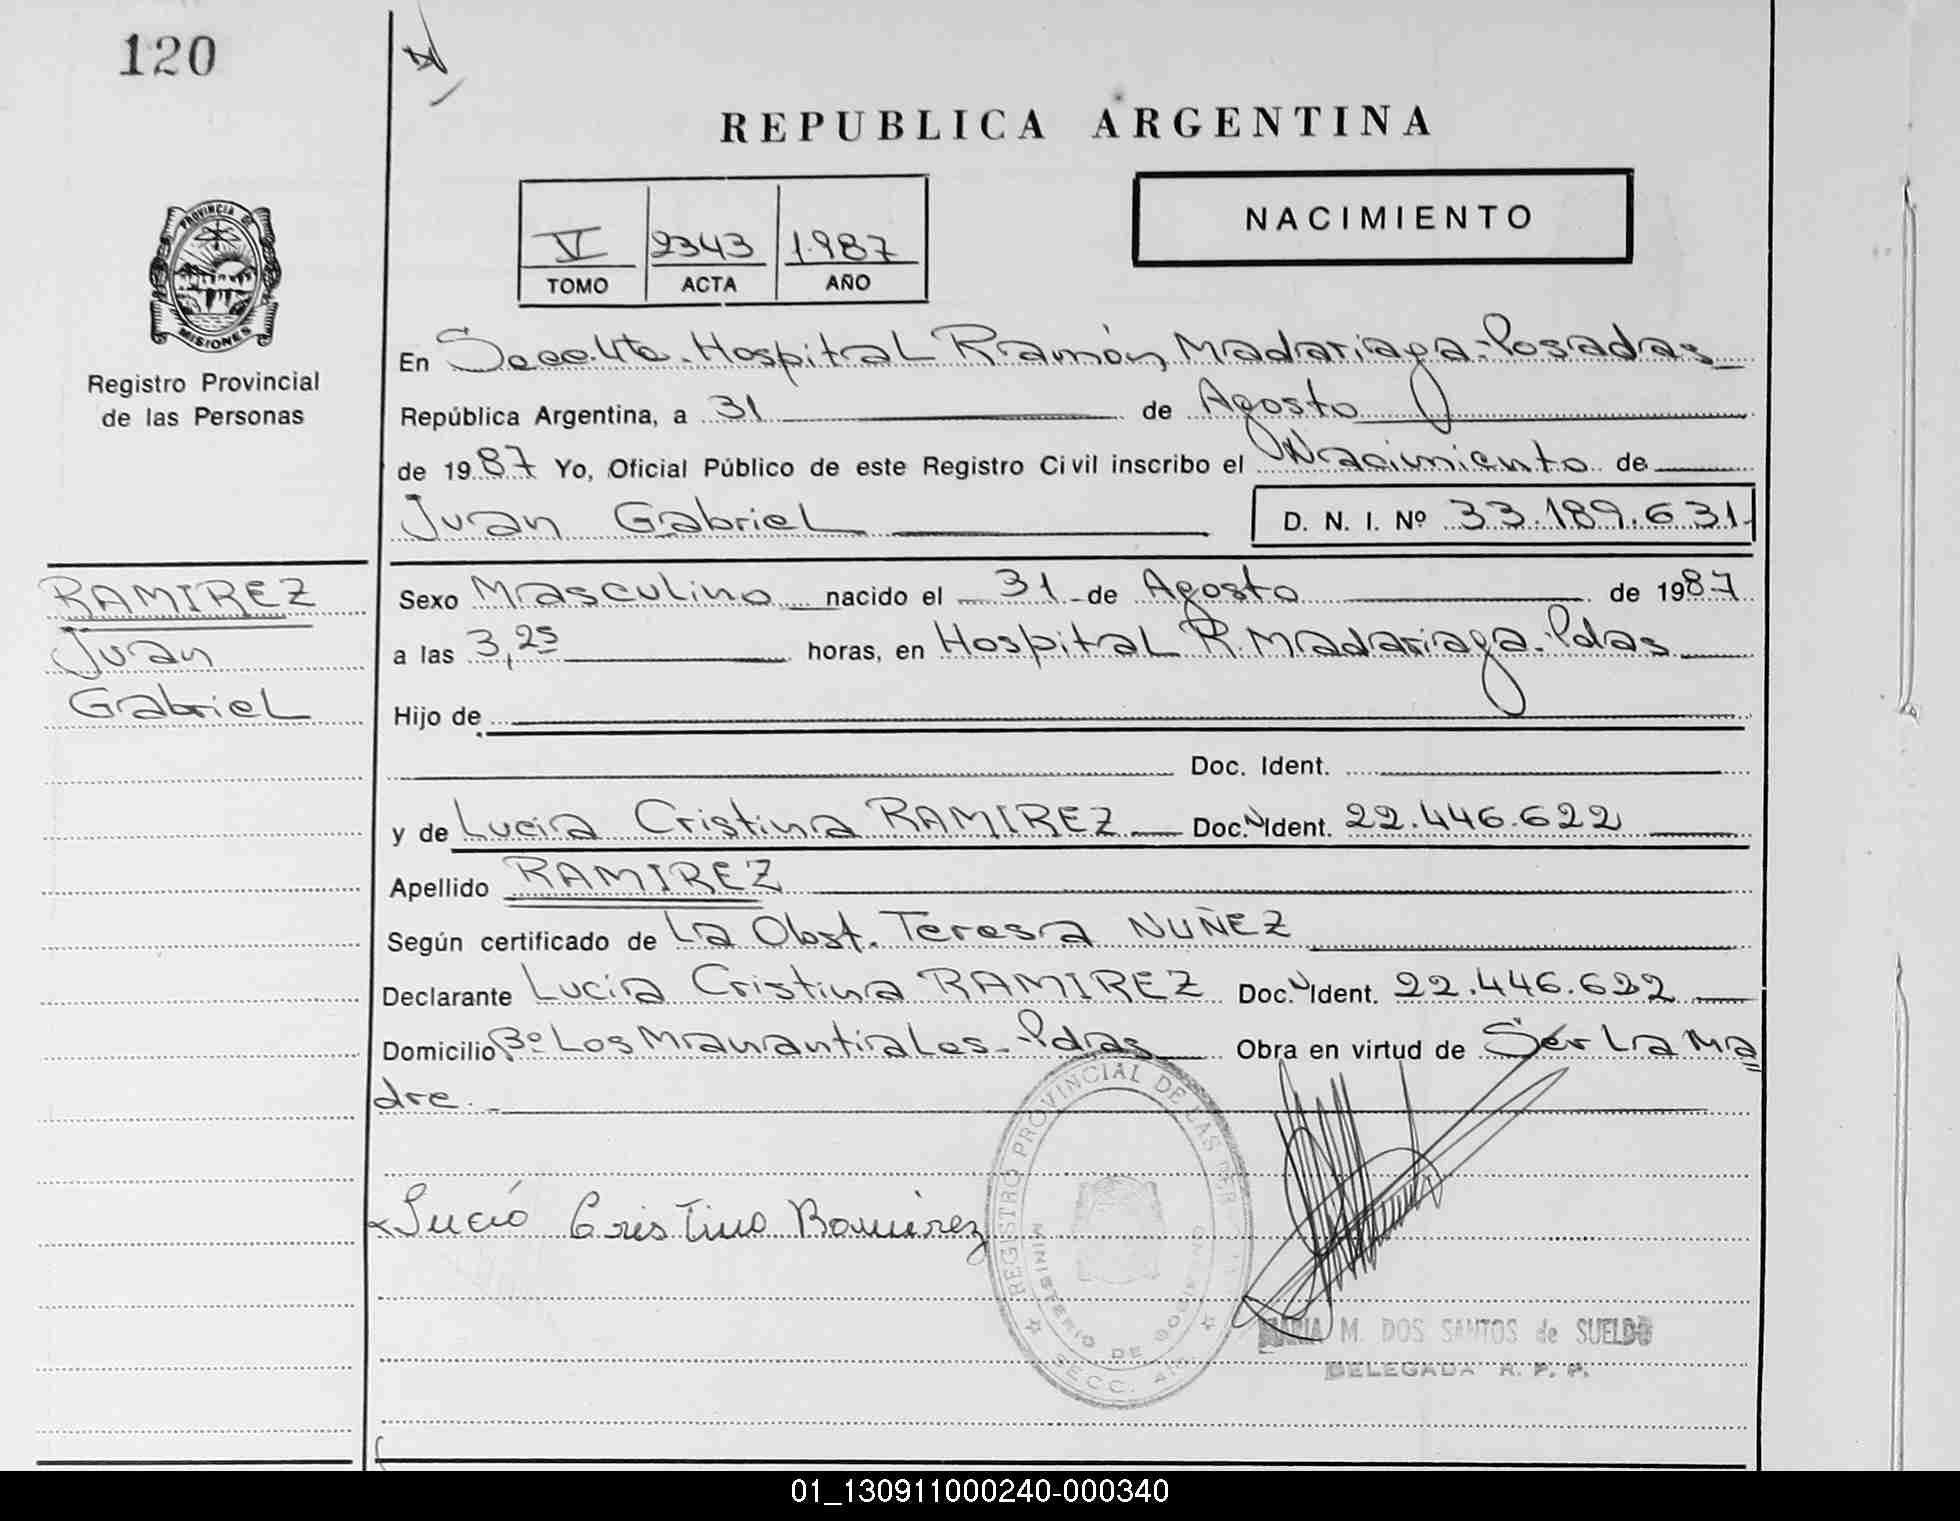 120
REPUBLICA ARGENTINA
V 2343 1.987
TOMO ACTA AÑO
NACIMIENTO
PROVINCIA DE
MISIONES
Registro Provincial
de las Personas
En Secc. 4ta. Hospital Ramón Madariaga-Posadas
República Argentina, a 31 de Agosto
de 1987 Yo, Oficial Público de este Registro Civil inscribo el Nacimiento de
Juan Gabriel
D. N. I. Nº 33.189.631
RAMIREZ
Juan
Gabriel
Sexo Masculino nacido el 31 de Agosto de 1987
a las 3,25 horas, en Hospital R. Madariaga-Pdas
Hijo de
Doc. Ident.
y de Lucia Cristina RAMIREZ Doc. N Ident. 22.446.622
Apellido RAMIREZ
Según certificado de La Obst. Teresa NUÑEZ
Declarante Lucia Cristina RAMIREZ Doc. N Ident. 22.446.622
Domicilio Bº Los Manantiales-Pdas Obra en virtud de Ser La Ma
dre.
Lucia Cristina Ramirez
REGISTRO PROVINCIAL DE LAS PER
MINISTERIO DE GOBIERNO
SECC. 4ta.
MARIA M. DOS SANTOS de SUELDO
DELEGADA R. P. P.
01_130911000240-000340